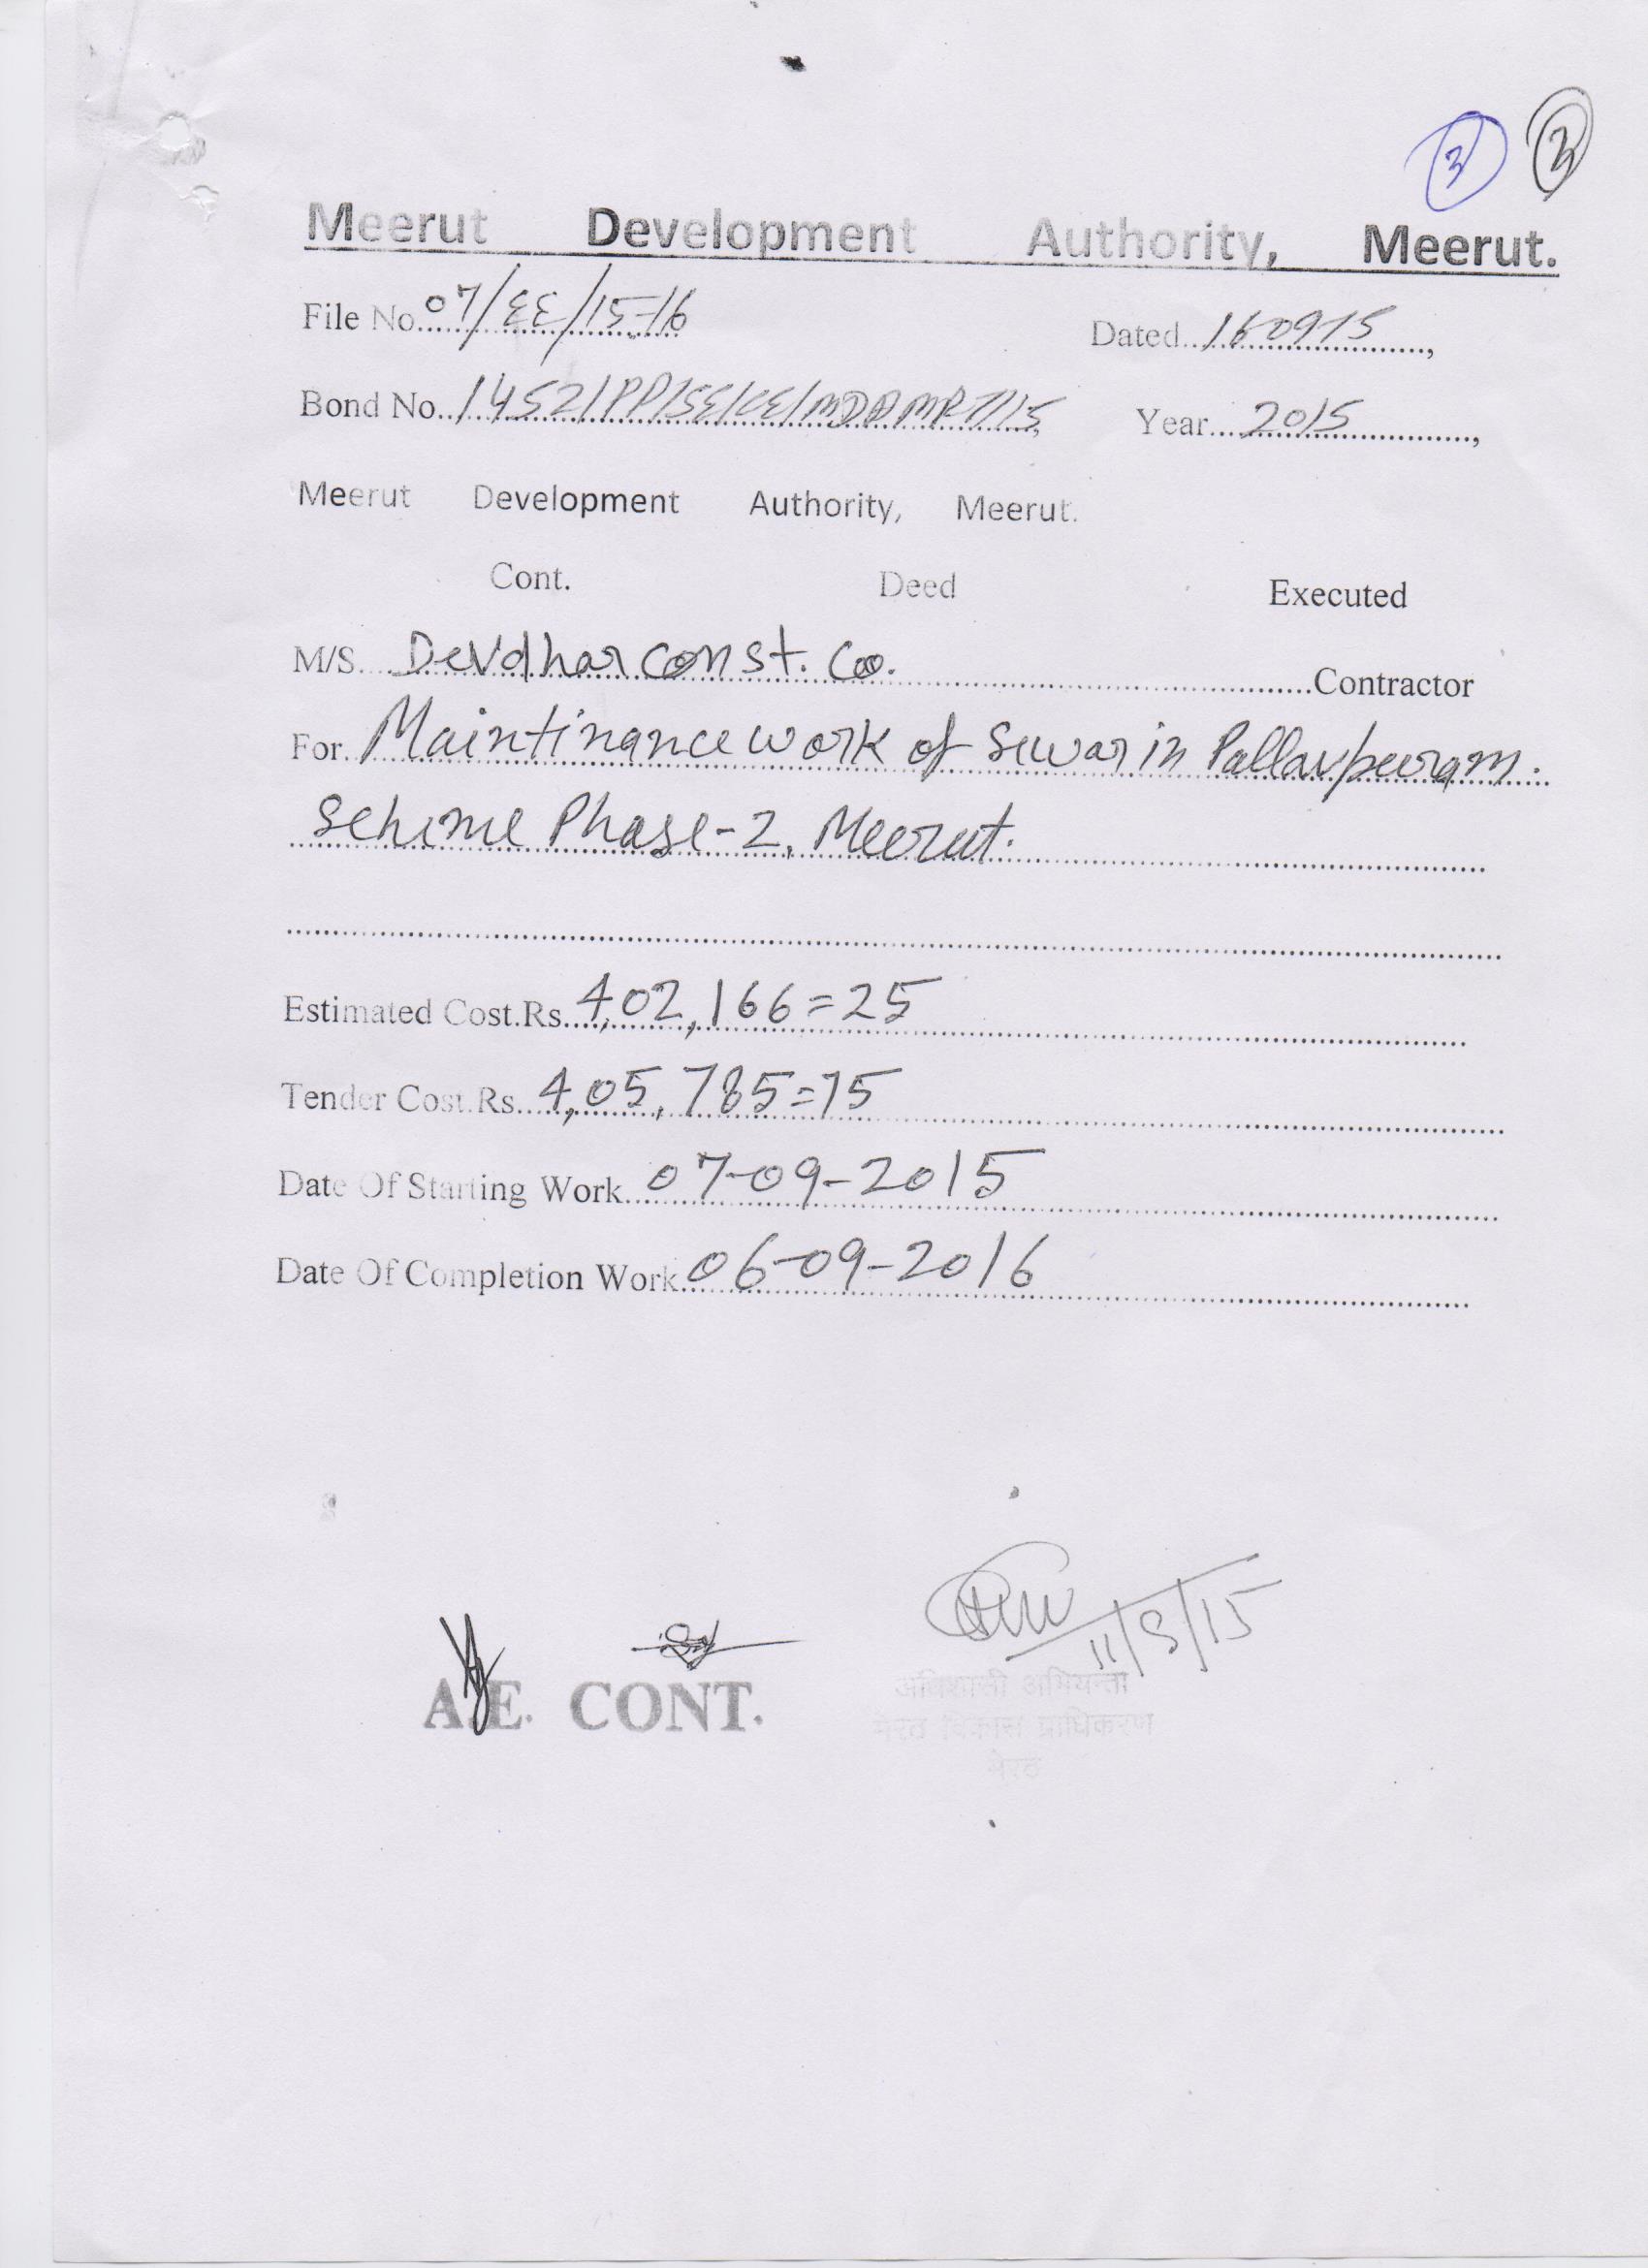 3 3
Meerut Development Authority, Meerut.
File No. 07/EE/15-16 Dated. 160915,
Bond No. 1452/PP/SE/CE/MDA MRT/15, Year. 2015,
Meerut Development Authority, Meerut.
Cont. Deed Executed
M/S. Devdhar Const. Co. Contractor
For. Maintinance work of Sewar in Pallavpuram.
Scheme Phase-2, Meerut.
Estimated Cost.Rs. 4,02,166=25
Tender Cost.Rs. 4,05,785=75
Date Of Starting Work 07-09-2015
Date Of Completion Work. 06-09-2016
11/9/15
A.E. CONT.
अधिशासी अभियन्ता
मेरठ विकास प्राधिकरण
मेरठ